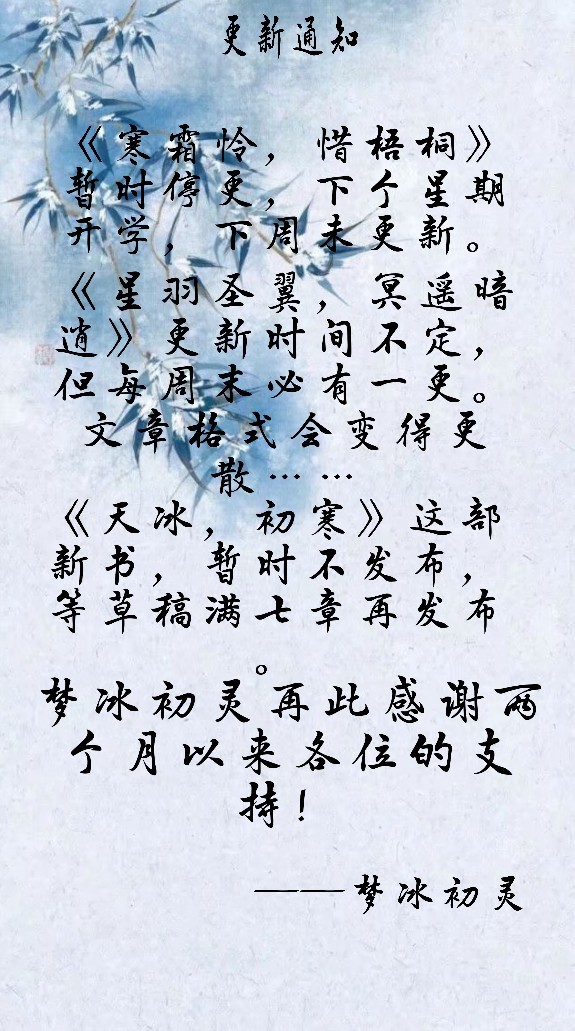 更新通知
《寒霜怜，惜梧桐》
暂时停更，下个星期
开学，下周末更新。
《星羽圣翼，冥遥暗
逍》更新时间不定，
但每周末必有一更。
文章格式会变得更
散……
《天冰，初寒》这部
新书，暂时不发布，
等草稿满七章再发布
。
梦冰初灵再此感谢两
个月以来各位的支
持！
——梦冰初灵